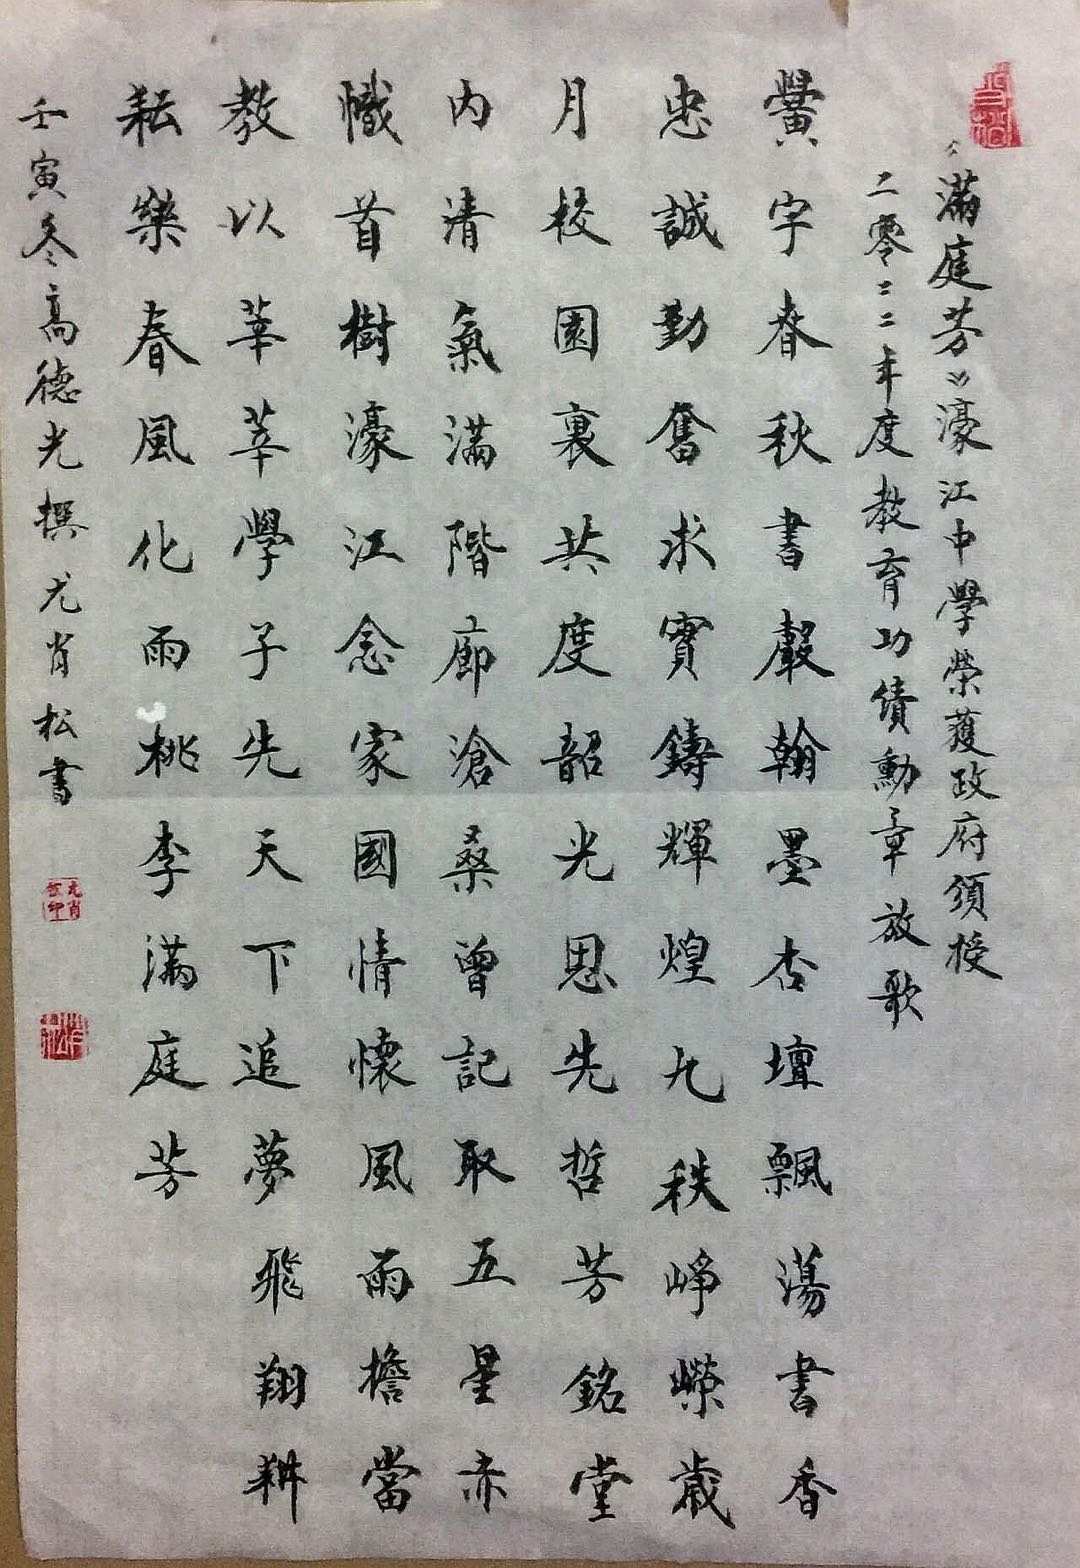 《滿庭芳》濠江中學榮獲政府頒授
二零二二年度教育功績勳章放歌
黌字春秋書聲翰墨杏壇飄蕩書香
忠誠勤奮求實鑄輝煌九秩崢嶸歲
月校園裏共度韶光思先哲芳銘堂
內清氣滿階廊滄桑曾記取五星赤
幟首樹濠江念家國情懷風雨擔當
教以莘莘學子先天下追夢飛翔耕
耘樂春風化雨桃李滿庭芳
壬寅冬高德光撰尤肖松書